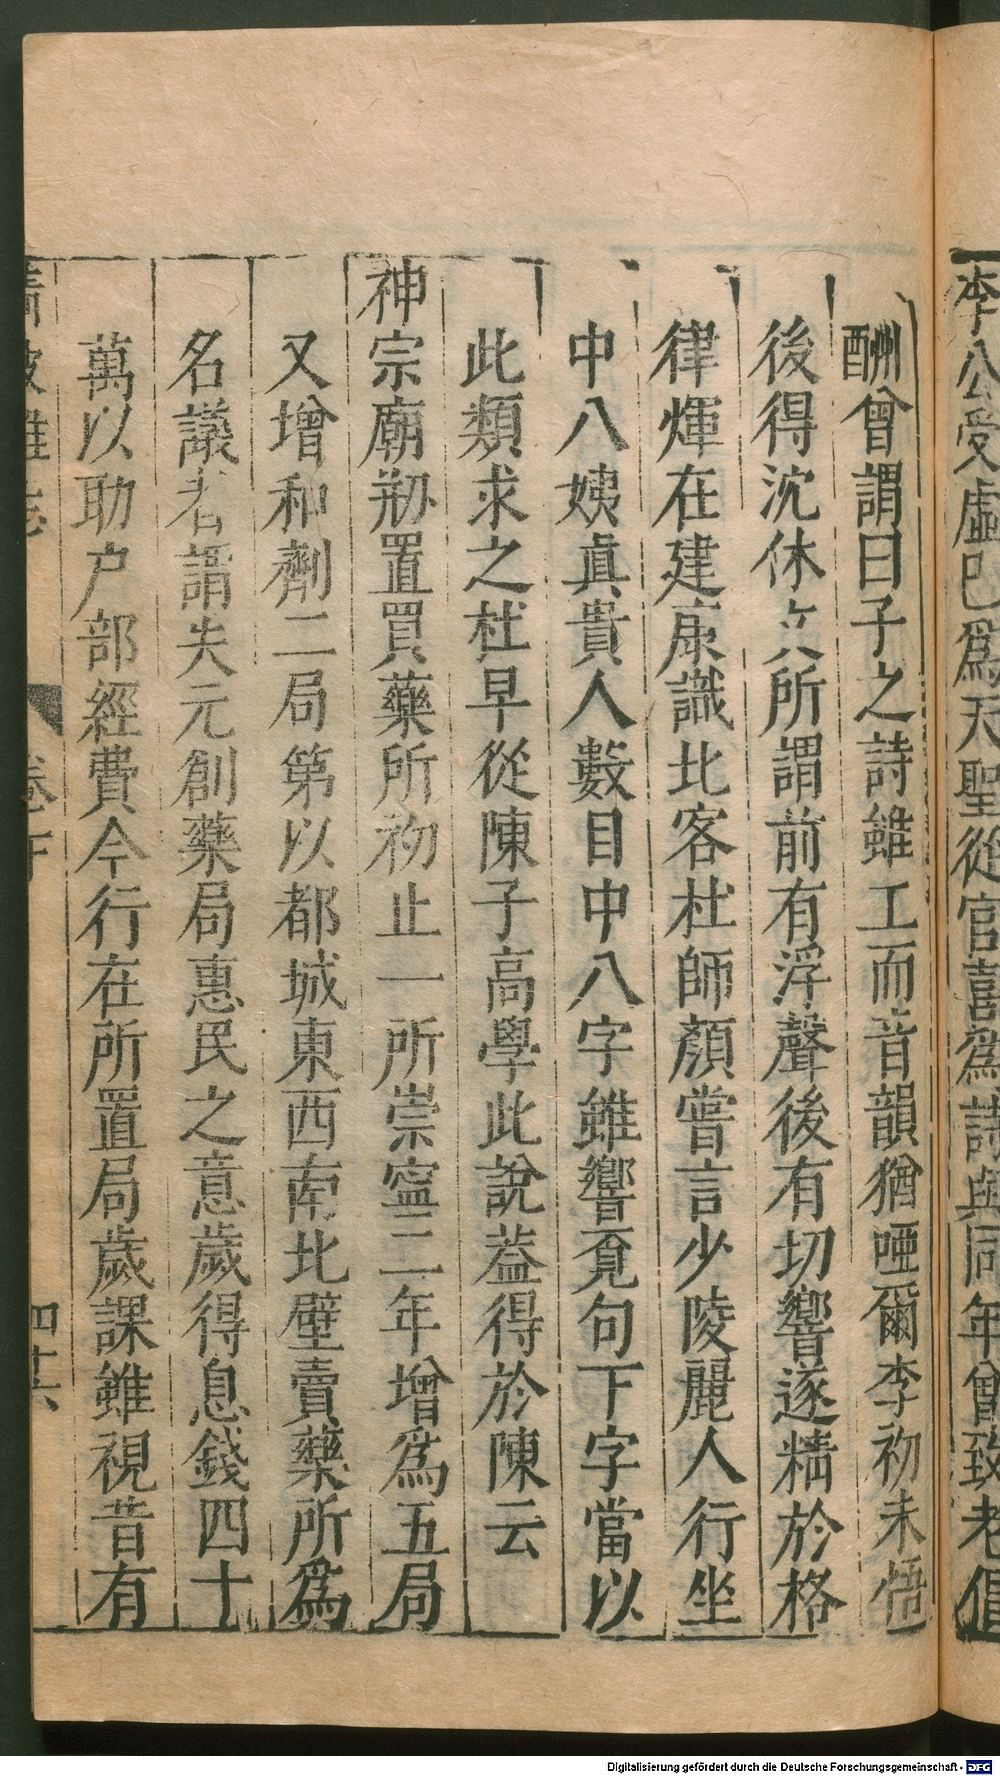 李公受虛已爲天聖從官喜爲詩與同年曾致老倡
酬曾謂曰子之詩雖工而音韻猶啞爾李初未悟
後得沈休文所謂前有浮聲後有切響遂精於格
律煇在建康識北客杜師顏嘗言少陵麗人行坐
中八姨眞貴人數目中八字雖響覔句下字當以
此類求之杜早從陳子高學此說葢得於陳云
神宗廟剏置買藥所初止一所崇寧二年增爲五局
又增和劑二局第以都城東西南北壁賣藥所爲
名議者謂失元創藥局惠民之意歲得息錢四十
萬以助户部經費今行在所置局歲課雖視昔有
清波雜志 卷下 四十六
Digitalisierung gefördert durch die Deutsche Forschungsgemeinschaft - DFG